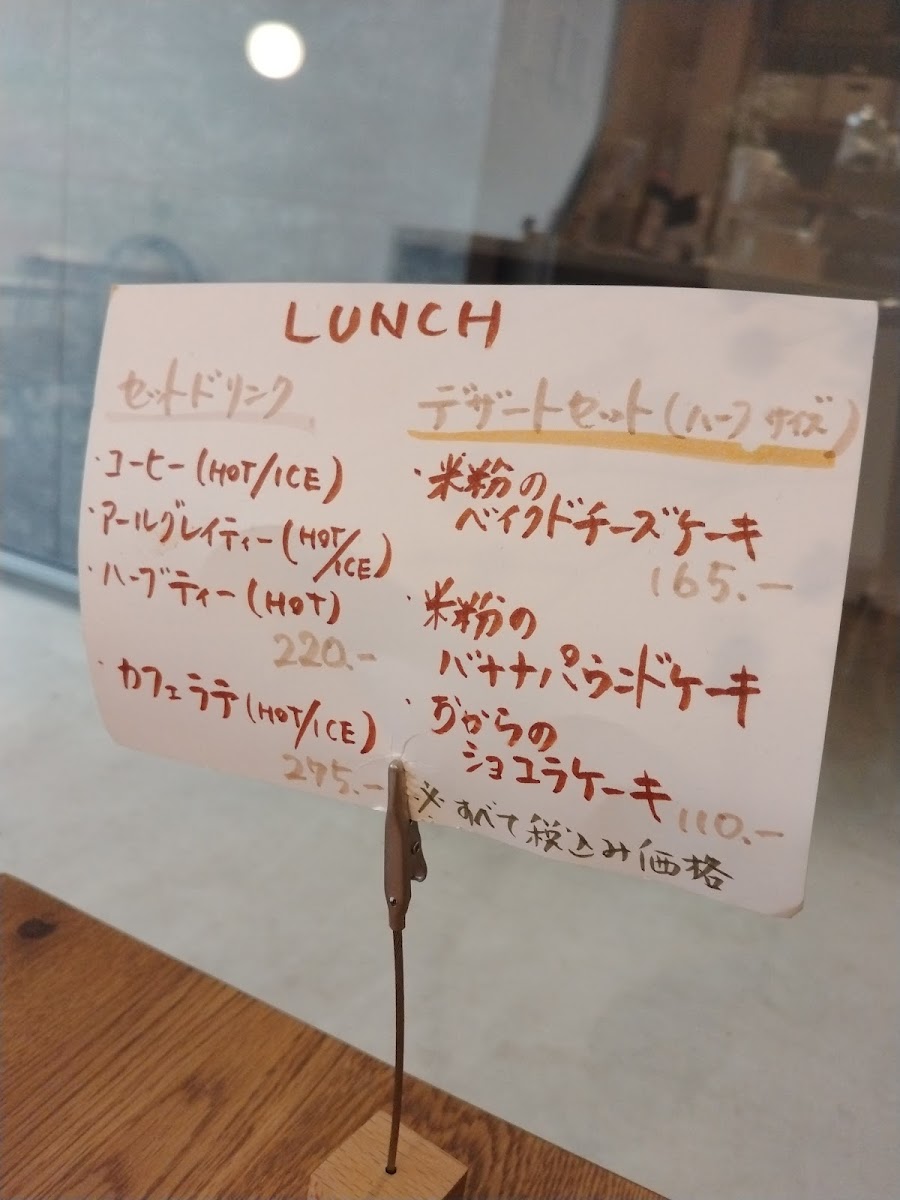 LUNCH
セットドリンク
・コーヒー(HOT/ICE)
・アールグレイティー(HOT/ICE)
・ハーブティー(HOT)
220.-
・カフェラテ(HOT/ICE)
275.-
デザートセット(ハーフサイズ)
・米粉の
ベイクドチーズケーキ
165.-
・米粉の
バナナパウンドケーキ
・おからの
ショコラケーキ
110.-
※すべて税込み価格